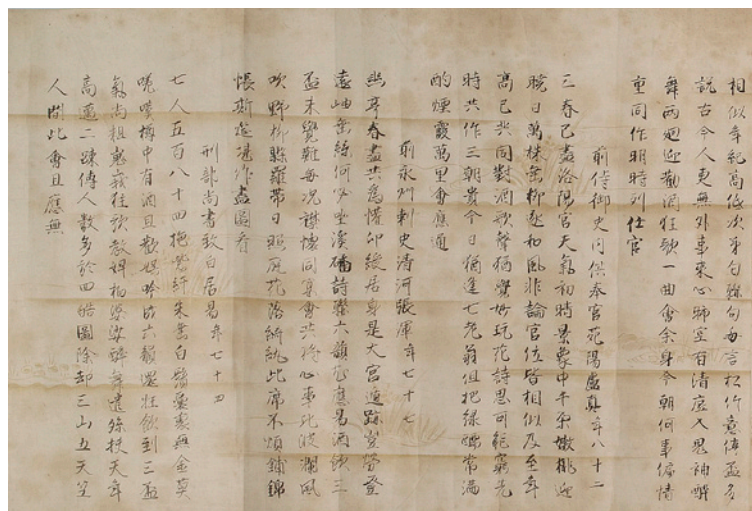 相似年紀高低次第勻聯句每言松竹意傳盃多
說古今人更無外事來心肺空有清虛入思神醉
舞兩廻迎勸酒狂歌一曲會余身今朝何事偏情
重同作明時列仕官
前侍御史內供奉官范陽盧真年八十二
三春已盡洛陽宮天氣初時景象中千朵嫩桃迎
曉日萬株垂柳逐和風非論官位皆相似及至年
高已共同對酒歌聲猶覺妙玩花詩思可能窮先
時共作三朝貴今日猶逢七老翁但把綠醑常滿
酌煙霞萬里會應通
前永州刺史清河張渾年七十七
幽亭春盡共為懽印綬居身是大官遁跡豈勞登
遠岫垂絲何必坐溪磻詩聯六韻猶應易酒飲三
盃未覺難每況襟懷同宴會共將心事比波瀾風
吹野柳懸羅帶日照庭花落綺紈此席不煩鋪錦
帳斯筵堪作畫圖看
刑部尚書致白居易年七十四
七人五百八十四拖紫紆朱垂白鬚囊裏無金莫
嗟嘆樽中有酒且歡娛吟成六韻還狂飲到三盃
氣尚粗嵬峩狂歌教婢拍婆娑醉舞遣孫扶天年
高邁二疎傳人數多於四皓圖除却三山五天竺
人間此會且應無